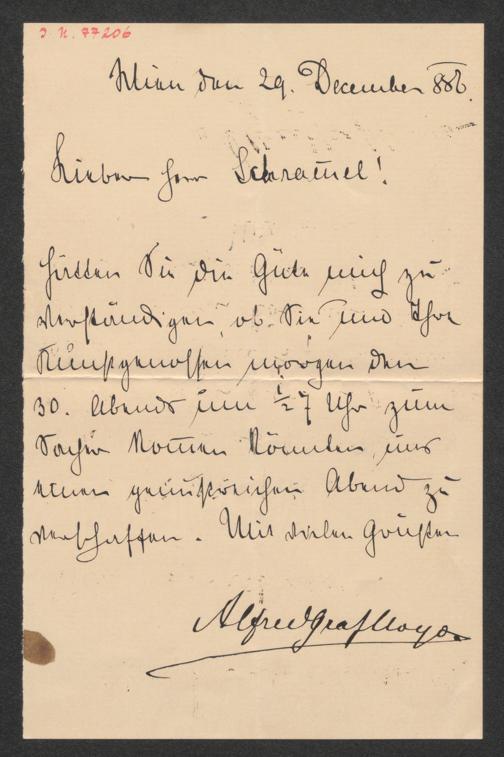 J. N. 77206
Wien den 29. December 886.
Lieber Herr Schram̄el!
Hätten Sie die Güte mich zu
verständigen, ob Sie und Ihre
Kunstgenossen morgen den
30. Abends um ½ 7 Uhr zum
Sacher kom̄en könnten, uns
einen genußreichen Abend zu
verschaffen. Mit vielen Grüßen
Alfred Graf